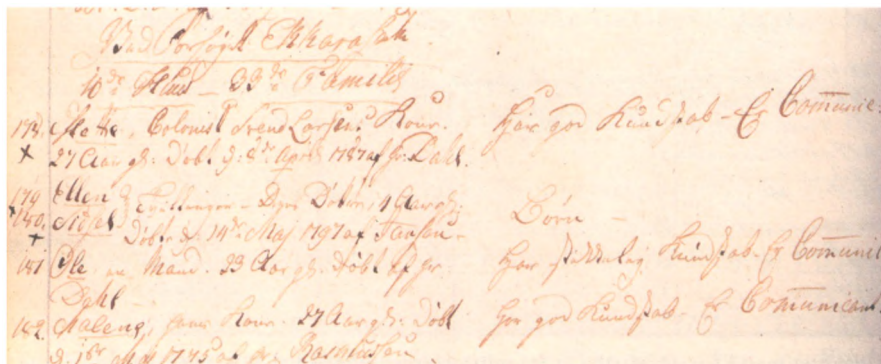 Ved Forsøget Ekkarasak
10de Huus – 33de Familie
Mette, Colonist Svend Larsens Kone. Har god Kundskab – Er Communic:
27 Aar gl: Døbt d: 8de April 1787 af Hr. Dahl.
179 Ellen
180. Tvillinger – Deres Døbte, 1 Aar gl: Børn –
Døbt d. 14de Maj 1797 af
181 Ole en Mand. 33 Aar gl: Døbt af Hr. Har Kundskab. Er Communi
Dahl
182. Malene, hans Kone. 27 Aar gl: Døbt Har god Kundskab. Er Communicant.
d: 1ste 1775 af Hr. Rasmussen